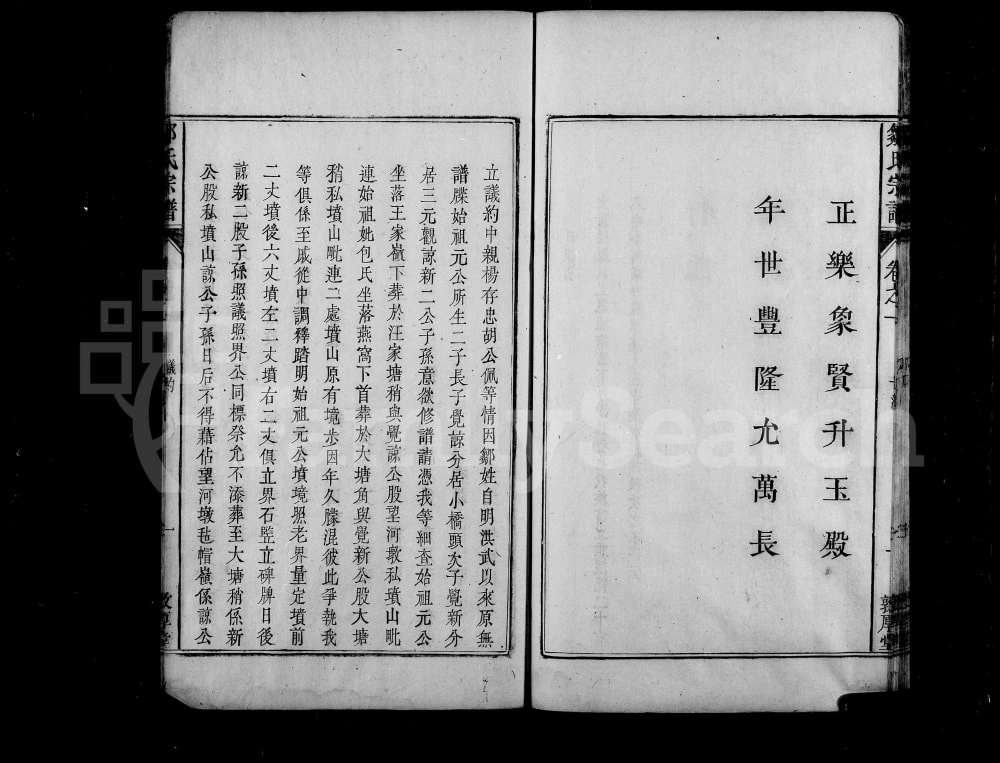 鄒氏宗譜
卷之一
敦厚堂
正樂象賢升玉殿
年世豐隆允萬長
立議約中親楊存忠胡公佩等情因鄒姓自明洪武以來原無
譜牒始祖元公所生二子長子覺諒分居小橋頭次子覺新分
居三元觀諒新二公子孫意欲修譜請憑我等細查始祖元公
坐落王家嶺下葬於汪家塘稍與覺諒公股望河墩私墳山毗
連始祖妣包氏坐落燕窩下首葬於大塘角與覺新公股大塘
稍私墳山毗連二處墳山原有境步因年久朦混彼此爭執我
等俱係至戚從中調釋踏明始祖元公墳境照老界量定墳前
二丈墳後六丈墳左二丈墳右二丈俱立界石豎立碑牌日後
諒新二股子孫照議照界公同標祭允不添葬至大塘稍係新
公股私墳山諒公子孫日后不得藉佔望河墩毡帽嶺係諒公
鄒氏宗譜
議約
一
敦厚堂
FamilySearch